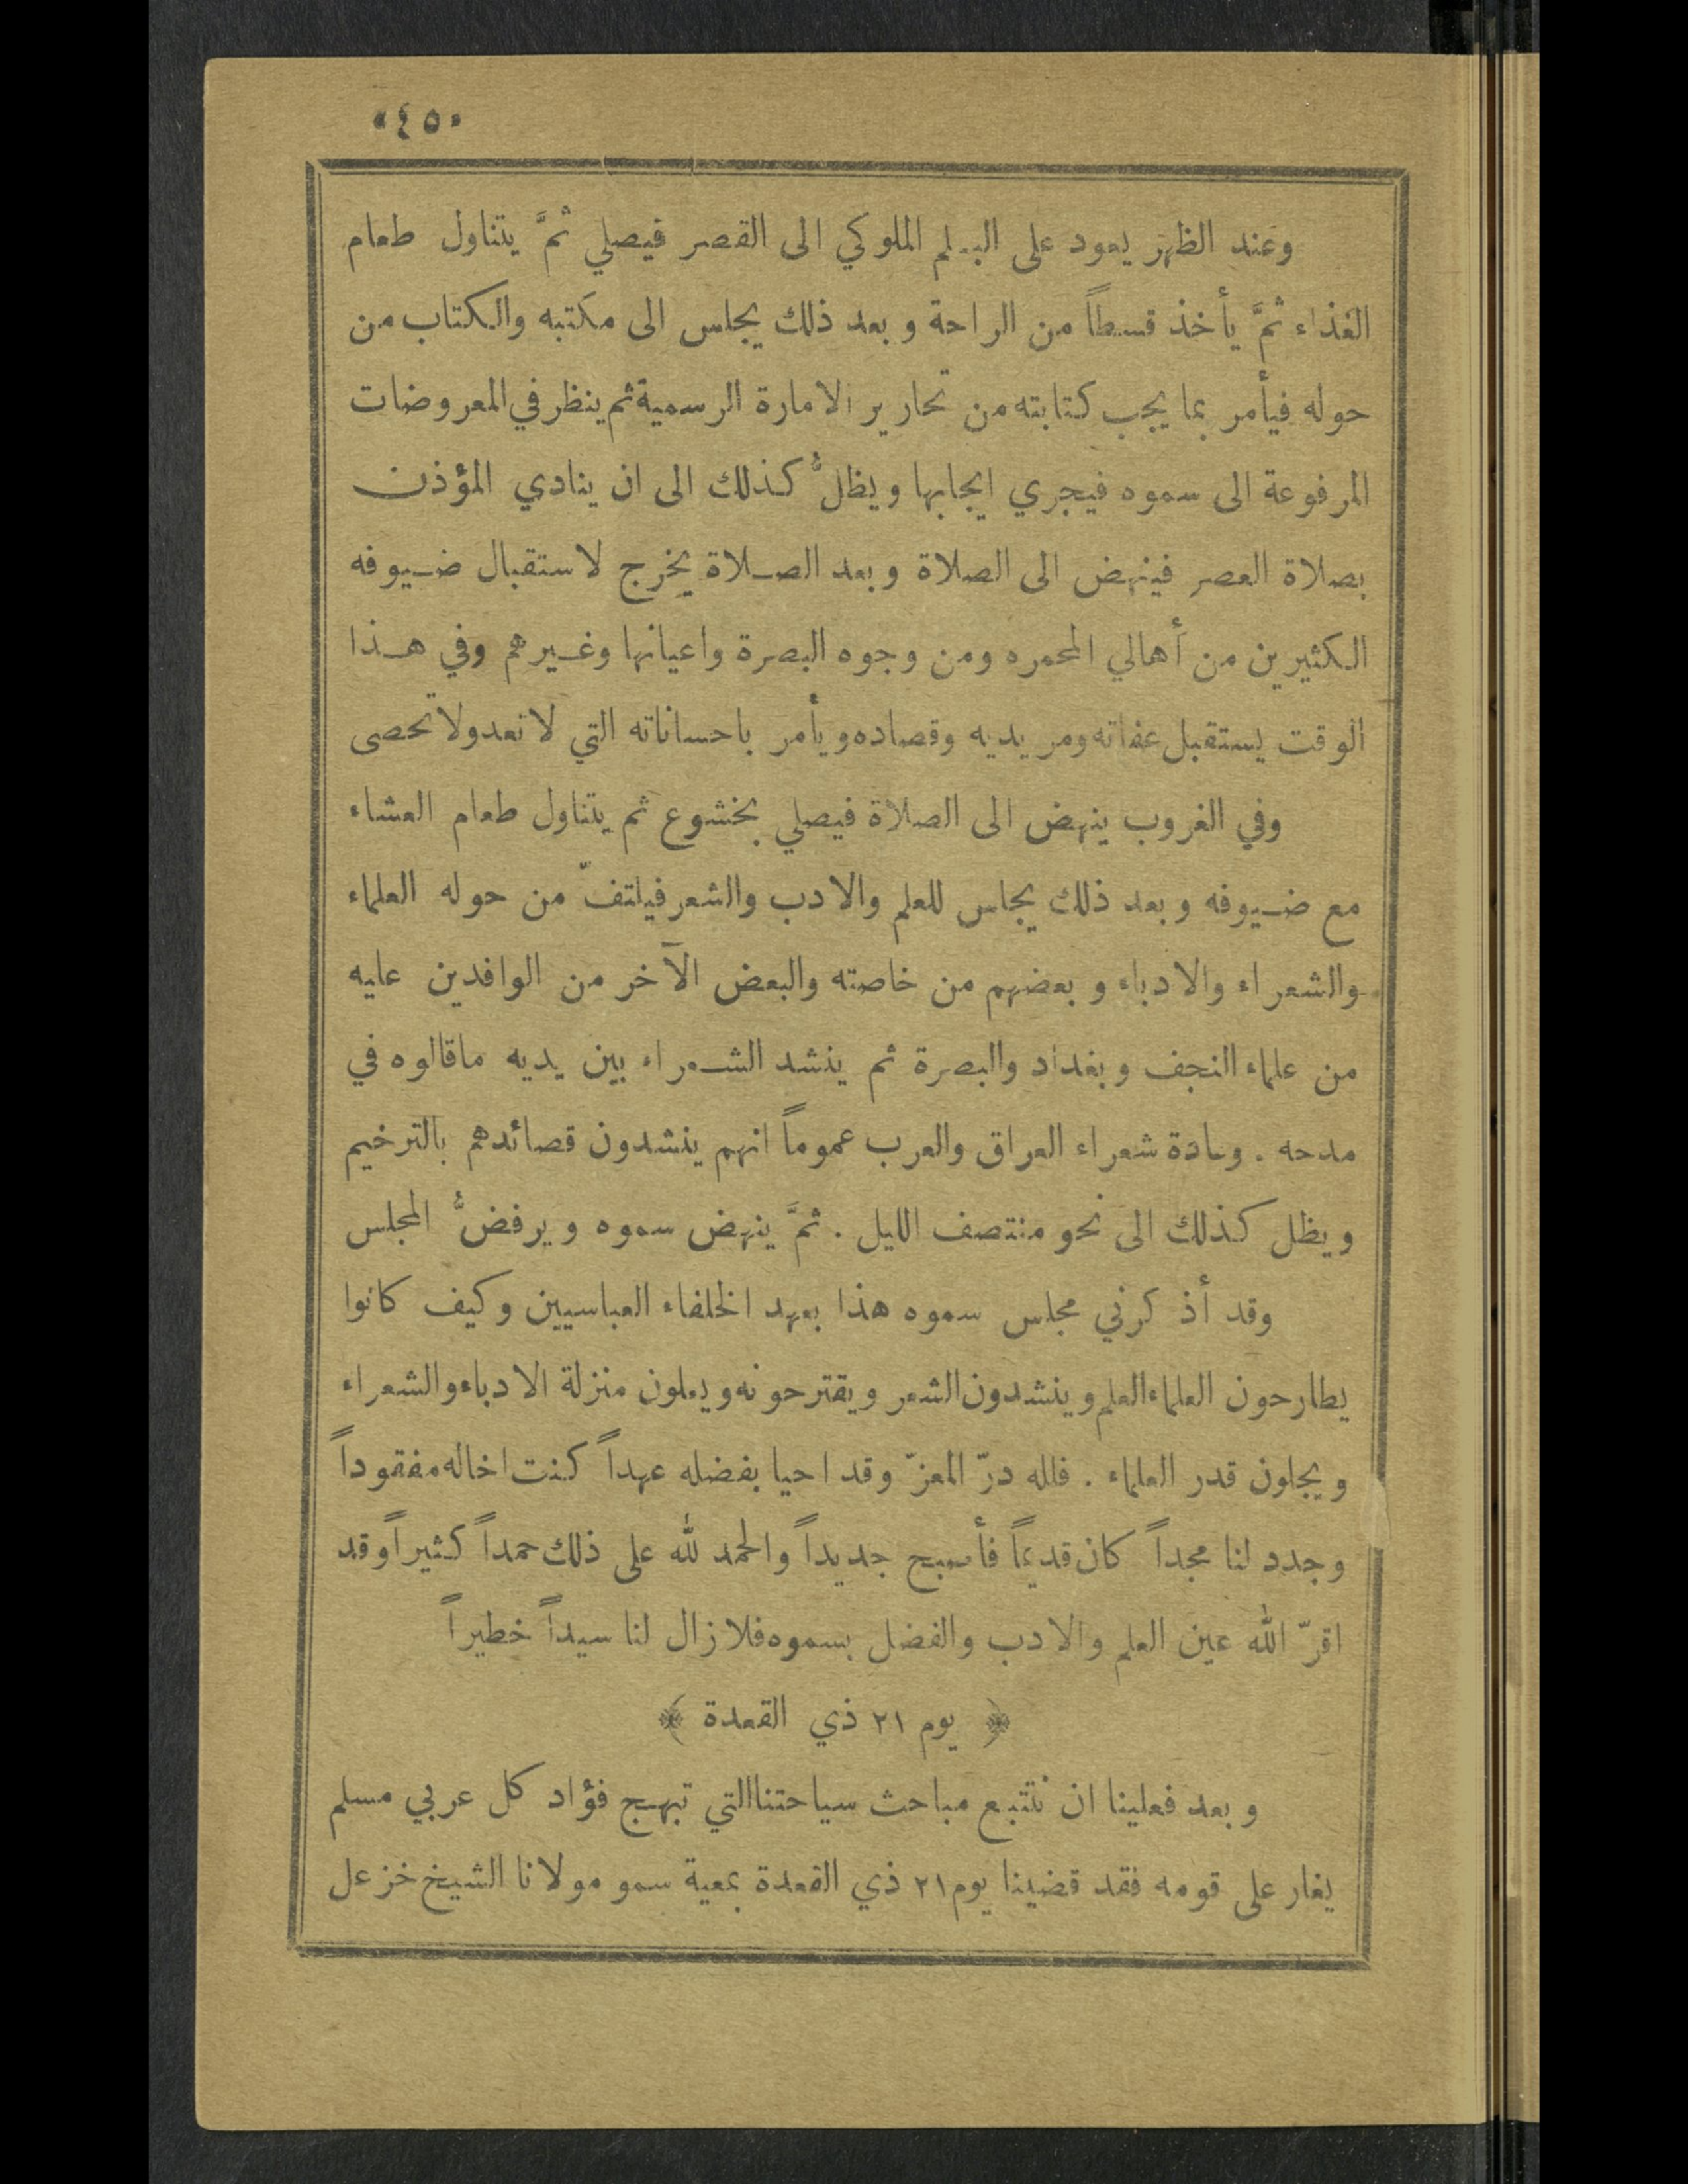 «٤٥»
وعند الظهر يعود على البلم الملوكي الى القصر فيصلي ثمَّ يتناول طعام
الغذاء ثمَّ يأخذ قسطاً من الراحة وبعد ذلك يجلس الى مكتبه والكتاب من
حوله فيأمر بما يجب كتابته من تحارير الامارة الرسمية ثم ينظر في المعروضات
المرفوعة الى سموه فيجري ايجابها ويظلُّ كذلك الى ان ينادي المؤذن
بصلاة العصر فينهض الى الصلاة وبعد الصلاة يخرج لاستقبال ضيوفه
الكثيرين من أهالي المحمره ومن وجوه البصرة واعيانها وغيرهم وفي هذا
الوقت يستقبل عفاته ومريديه وقصاده ويأمر باحساناته التي لا تعد ولا تحصى
وفي الغروب ينهض الى الصلاة فيصلي بخشوع ثم يتناول طعام العشاء
مع ضيوفه وبعد ذلك يجلس للعلم والادب والشعر فيلتفّ من حوله العلماء
والشعراء والادباء وبعضهم من خاصته والبعض الآخر من الوافدين عليه
من علماء النجف وبغداد والبصرة ثم ينشد الشعراء بين يديه ماقالوه في
مدحه . وعادة شعراء العراق والعرب عموماً انهم ينشدون قصائدهم بالترخيم
ويظل كذلك الى نحو منتصف الليل . ثمَّ ينهض سموه ويرفضُّ المجلس
وقد أذكرني مجلس سموه هذا بعهد الخلفاء العباسيين وكيف كانوا
يطارحون العلماء العلم وينشدون الشعر ويقترحونه ويعلون منزلة الادباء والشعراء
ويجلون قدر العلماء . فلله درّ المعزّ وقد احيا بفضله عهداً كنت اخاله مفقوداً
وجدد لنا مجداً كان قديماً فأصبح جديداً والحمد لله على ذلك حمداً كثيراً وقد
اقرّ الله عين العلم والادب والفضل بسموه فلا زال لنا سيداً خطيراً
﴿ يوم ٢١ ذي القعدة ﴾
وبعد فعلينا ان نتتبع مباحث سياحتنا التي تبهج فؤاد كل عربي مسلم
يغار على قومه فقد قضينا يوم ٢١ ذي القعدة بمعية سمو مولانا الشيخ خزعل